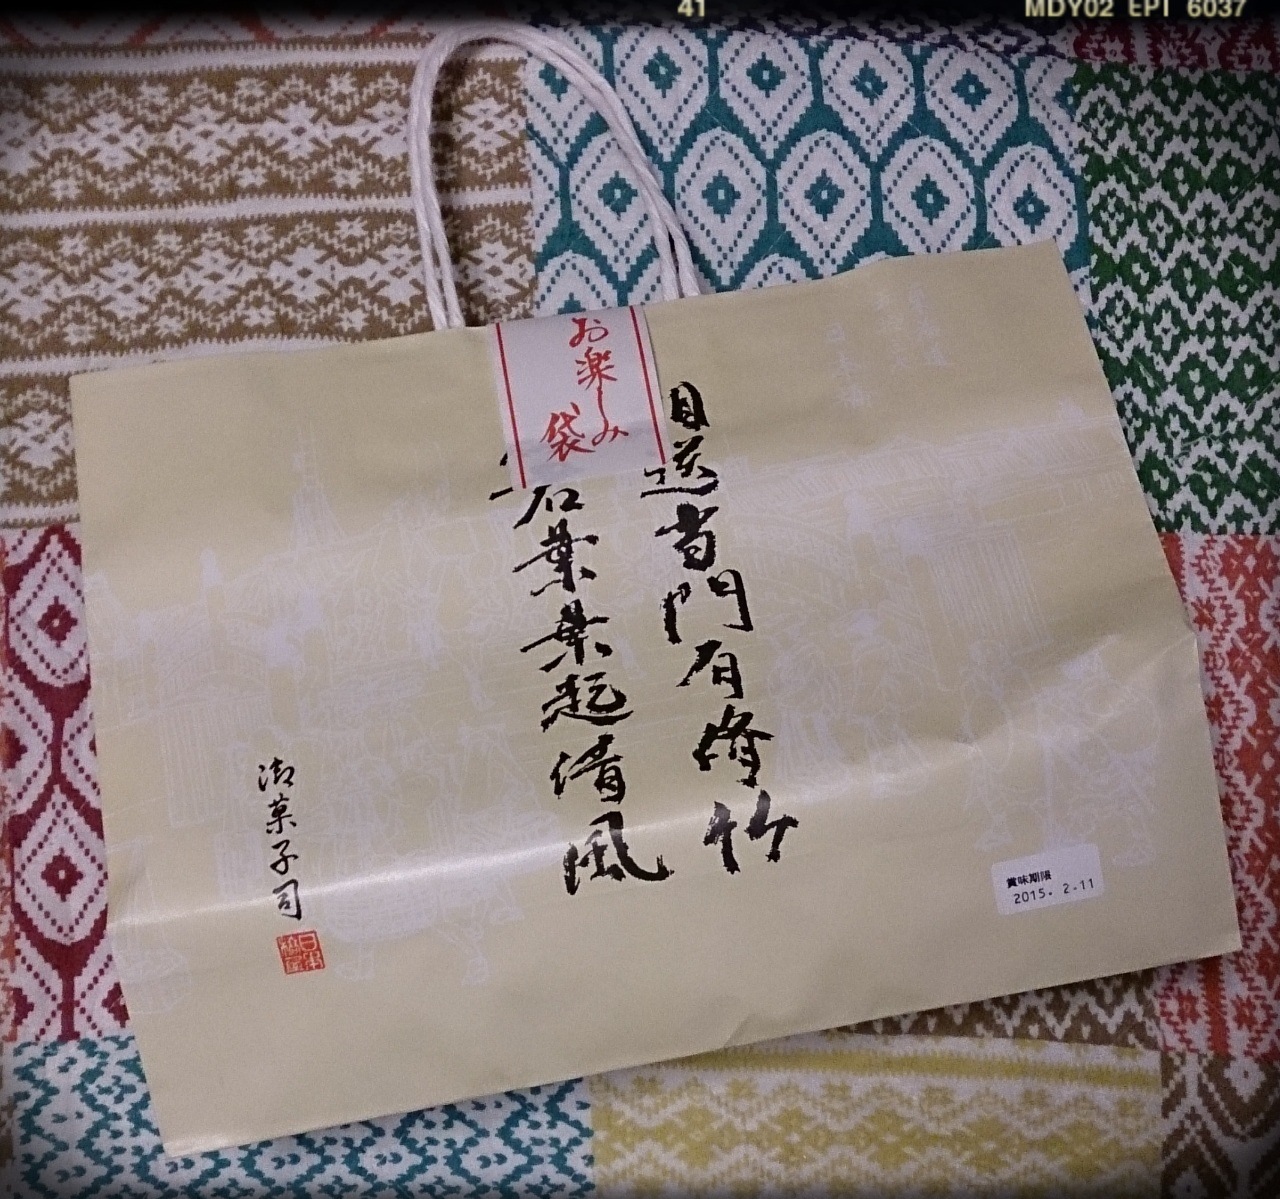 41
MDY02 EPT 6037
お楽しみ
袋
目送当門有脩竹
名葉葉起清風
御菓子司
日本橋屋
賞味期限
2015. 2.11